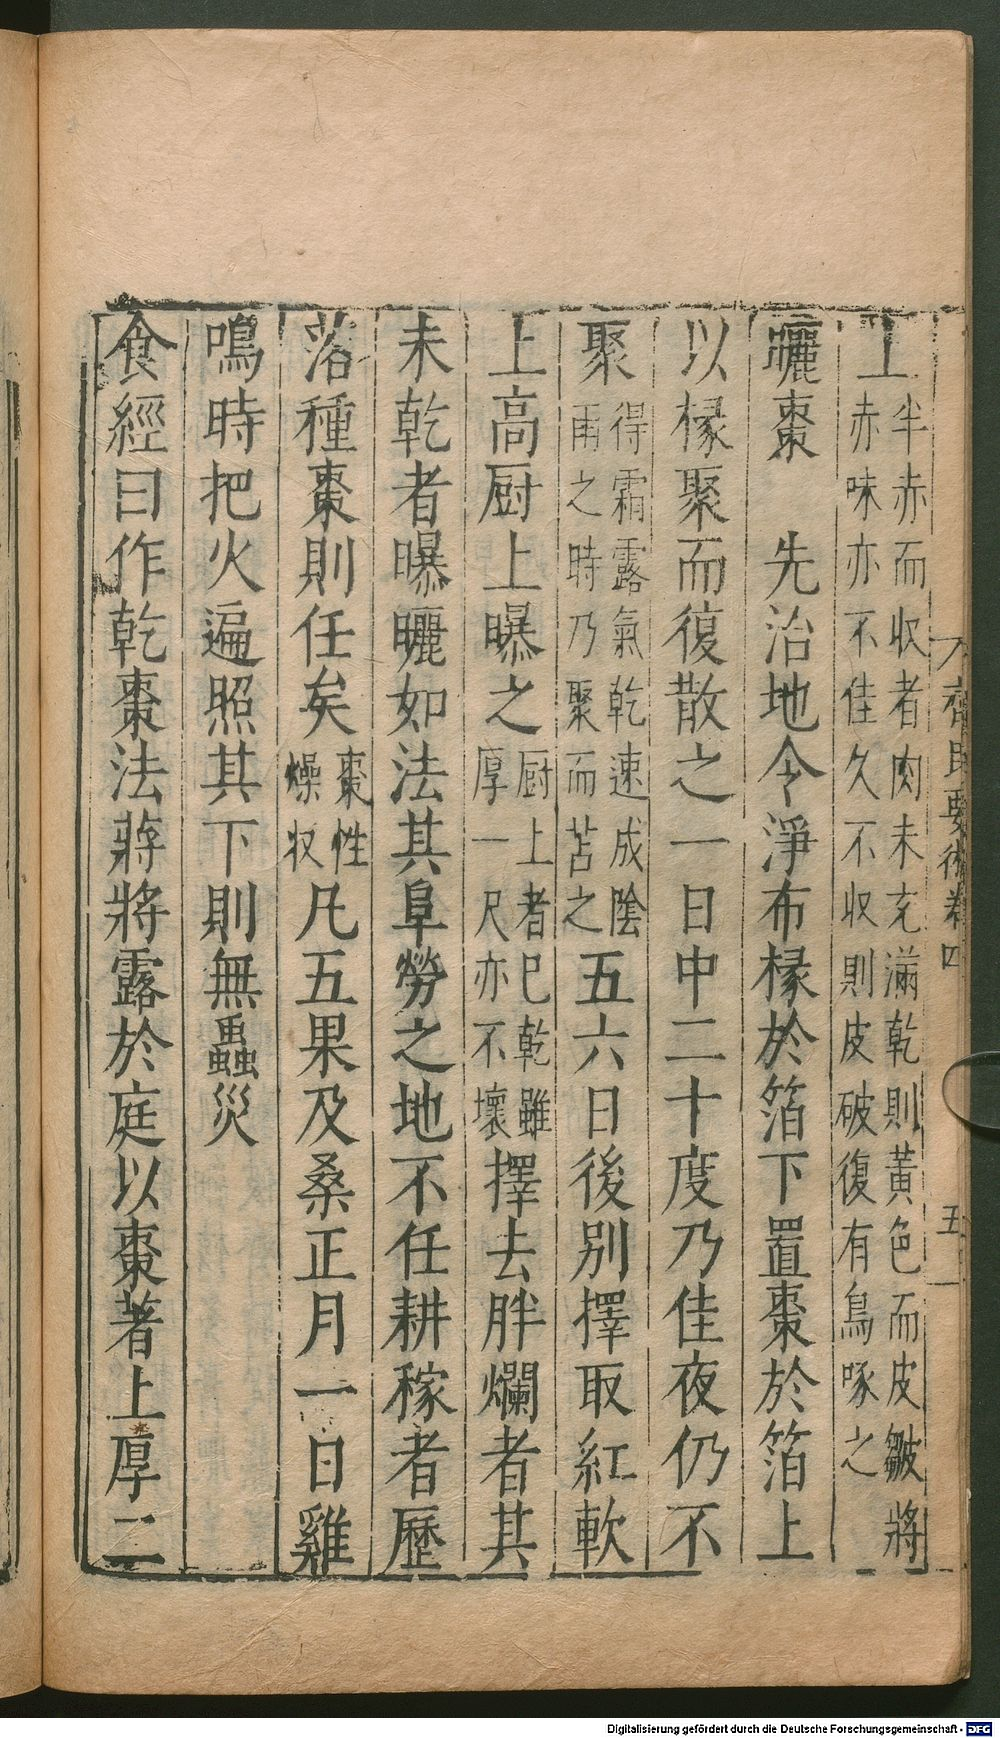 齊民要術卷四
五
上 半赤而收者肉未充滿乾則黃色而皮皺將赤味亦不佳久不收則皮破復有鳥啄之
曬棗 先治地令淨布椽於箔下置棗於箔上
以椽聚而復散之一日中二十度乃佳夜仍不
聚 得霜露氣乾速成陰雨之時乃聚而苫之 五六日後別擇取紅軟
上高厨上曝之 厨上者巳乾雖厚一尺亦不壞 擇去胖爛者其
未乾者曝曬如法其阜勞之地不任耕稼者歷
落種棗則任矣 棗性燥収 凡五果及桑正月一日雞
鳴時把火遍照其下則無蟲災
食經曰作乾棗法蔣將露於庭以棗著上厚二
Digitalisierung gefördert durch die Deutsche Forschungsgemeinschaft - DFG